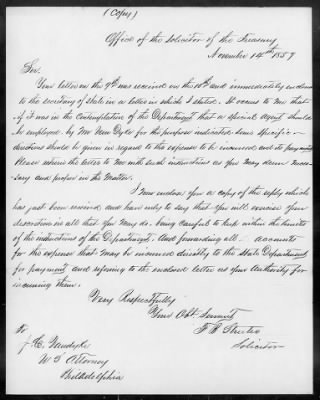 (Copy)
Office of the Solicitor of the Treasury
November 14th 1857
Sir.
Your letter on the 9th was received on the 10th and immediately enclosed
to the secretary of state in a letter in which I stated. It occurs to me that
if it was in the Contemplation of the Department that a special Agent should
be employed by Mr Van Dyke for the purpose indicated some specific
directions should be given in regard to the expense to be incurred and its payment
Please return the letter to me with such instructions as you may deem neces-
sary and proper in the matter.
I now enclose you a copy of the reply which
has just been received and have only to say that you will exercise your
discretion in all that you may do, being careful to keep within the limits
of the instructions of the Department. And forwarding all accounts
for the expense that may be incurred directly to the State Department
for payment and referring to the enclosed letter as your authority for
incurring them.
Very Respectfully
Your Obt. Servant
F B Streeter
Solicitor
To
J. C. Vandyke
U S Attorney
Philadelphia